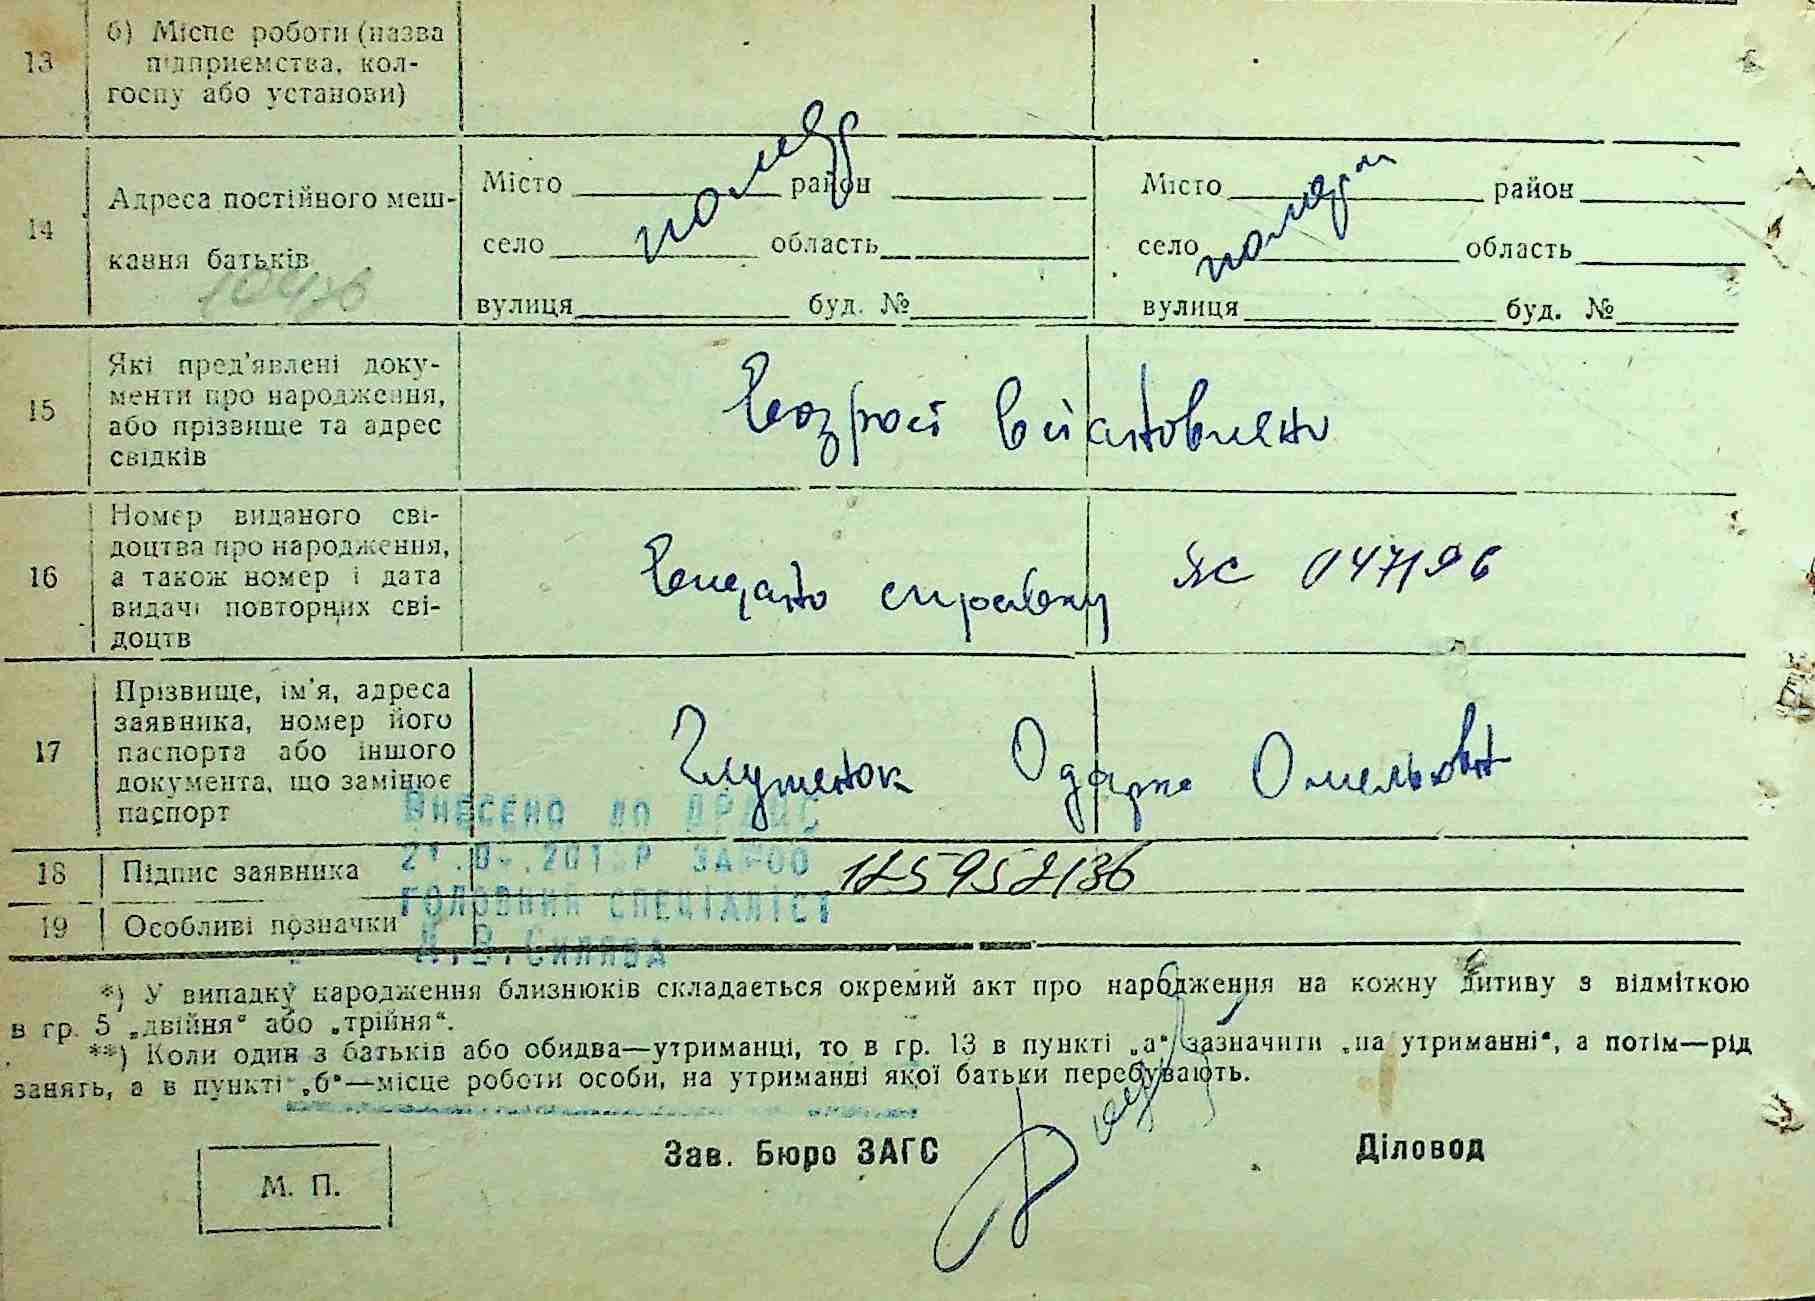 13 б) Місце роботи (назва
підприємства, кол-
госпу або установи)
14 Адреса постійного меш-
кання батьків
10436
Місто район
село область
вулиця буд. №
помер
Місто район
село область
вулиця буд. №
померла
15 Які пред'явлені доку-
менти про народження,
або прізвище та адрес
свідків
Возраст встановлено
16 Номер виданого сві-
доцтва про народження,
а також номер і дата
видачі повторних сві-
доцтв
Видано справку ЯС 047196
17 Прізвище, ім'я, адреса
заявника, номер його
паспорта або іншого
документа, що замінює
паспорт
Одарка Омельковна
ВНЕСЕНО ДО ДРАЦС
18 Підпис заявника
125952136
ГОЛОВНИЙ СПЕЦІАЛІСТ
19 Особливі позначки
*) У випадку народження близнюків складається окремий акт про народження на кожну дитину з відміткою
в гр. 5 „двійня“ або „трійня“.
**) Коли один з батьків або обидва—утриманці, то в гр. 13 в пункті „а“ зазначити „на утриманні“, а потім—рід
занять, а в пункті „б“—місце роботи особи, на утриманні якої батьки перебувають.
Зав. Бюро ЗАГС Діловод
М. П.